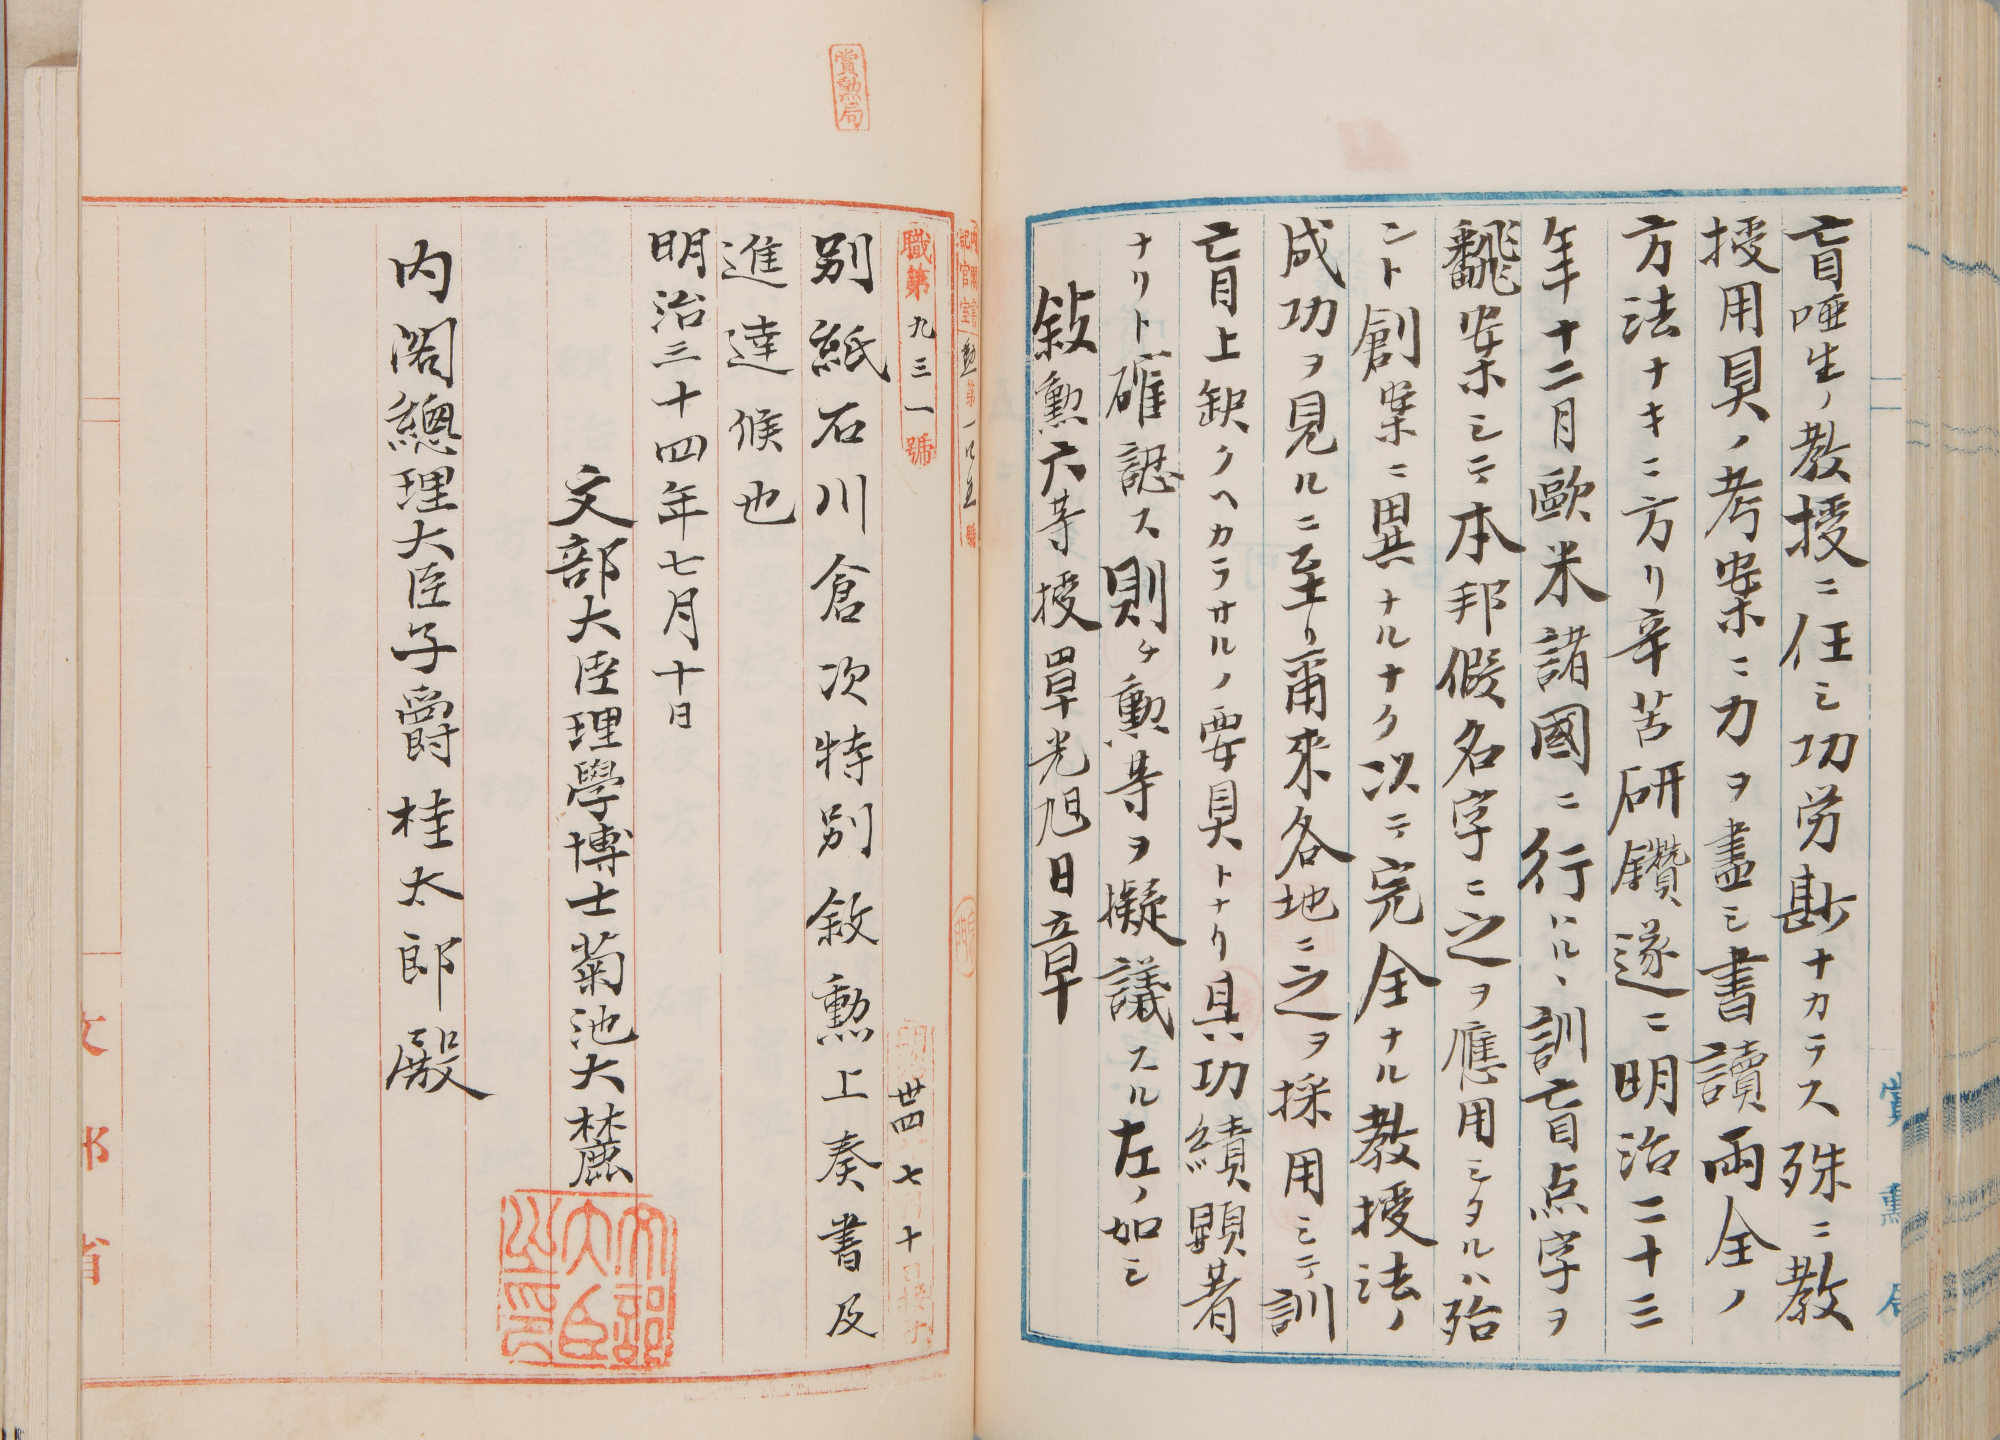 盲唖生ノ教授ニ任シ功労尠ナカラス殊ニ教
授用具ノ考案ニ力ヲ盡シ書讀兩全ノ
方法ナキニ方リ辛苦研鑽遂ニ明治二十三
年十二月歐米諸國ニ行ハル、訓盲点字ヲ
飜案シテ本邦假名字ニ之ヲ應用シタルハ殆
ント創案ニ異ナルナク以テ完全ナル教授法ノ
成功ヲ見ルニ至リ爾来各地ニ之ヲ採用シテ訓
盲上缺クヘカラサルノ要具トナリ其功績顕著
ナリト確認ス則チ勲等ヲ擬議スル左ノ如シ
敍勲六等授單光旭日章
賞勲局
賞勲局
職第九三一號
別紙石川倉次特別敘勲上奏書及
進達候也
明治三十四年七月十日
文部大臣理學博士菊池大麓
文部大臣之印
内閣總理大臣子爵桂太郎殿
文部省